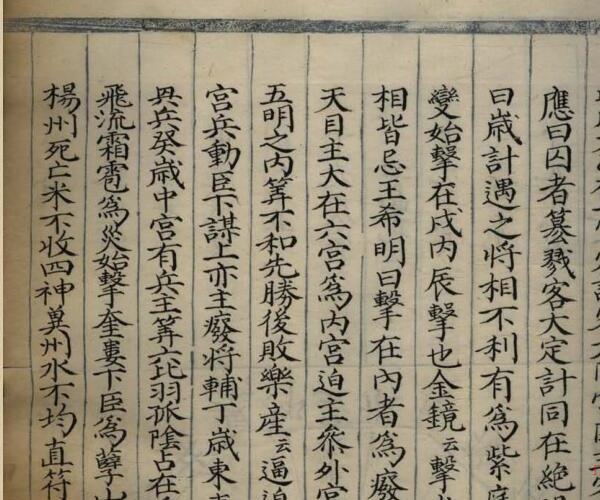 應曰囚者篡戮客大定計同在絶
曰歳計遇之将相不利有爲紫庭
變始擊在戌内辰擊也金鏡云擊
相皆忌王希明曰擊在内者爲癈
天目主大在六宫爲内宫迫主叅外宫
五明之内筭不和先勝後敗樂産云逼迫
宫兵動臣下謀上亦主癈将輔丁歳東
與兵癸歳中宫有兵主筭六疋羽孤隂占在
飛流霜雹爲災始擊奎婁下臣爲孽
楊州死亡米不收四神兾州水不均直符